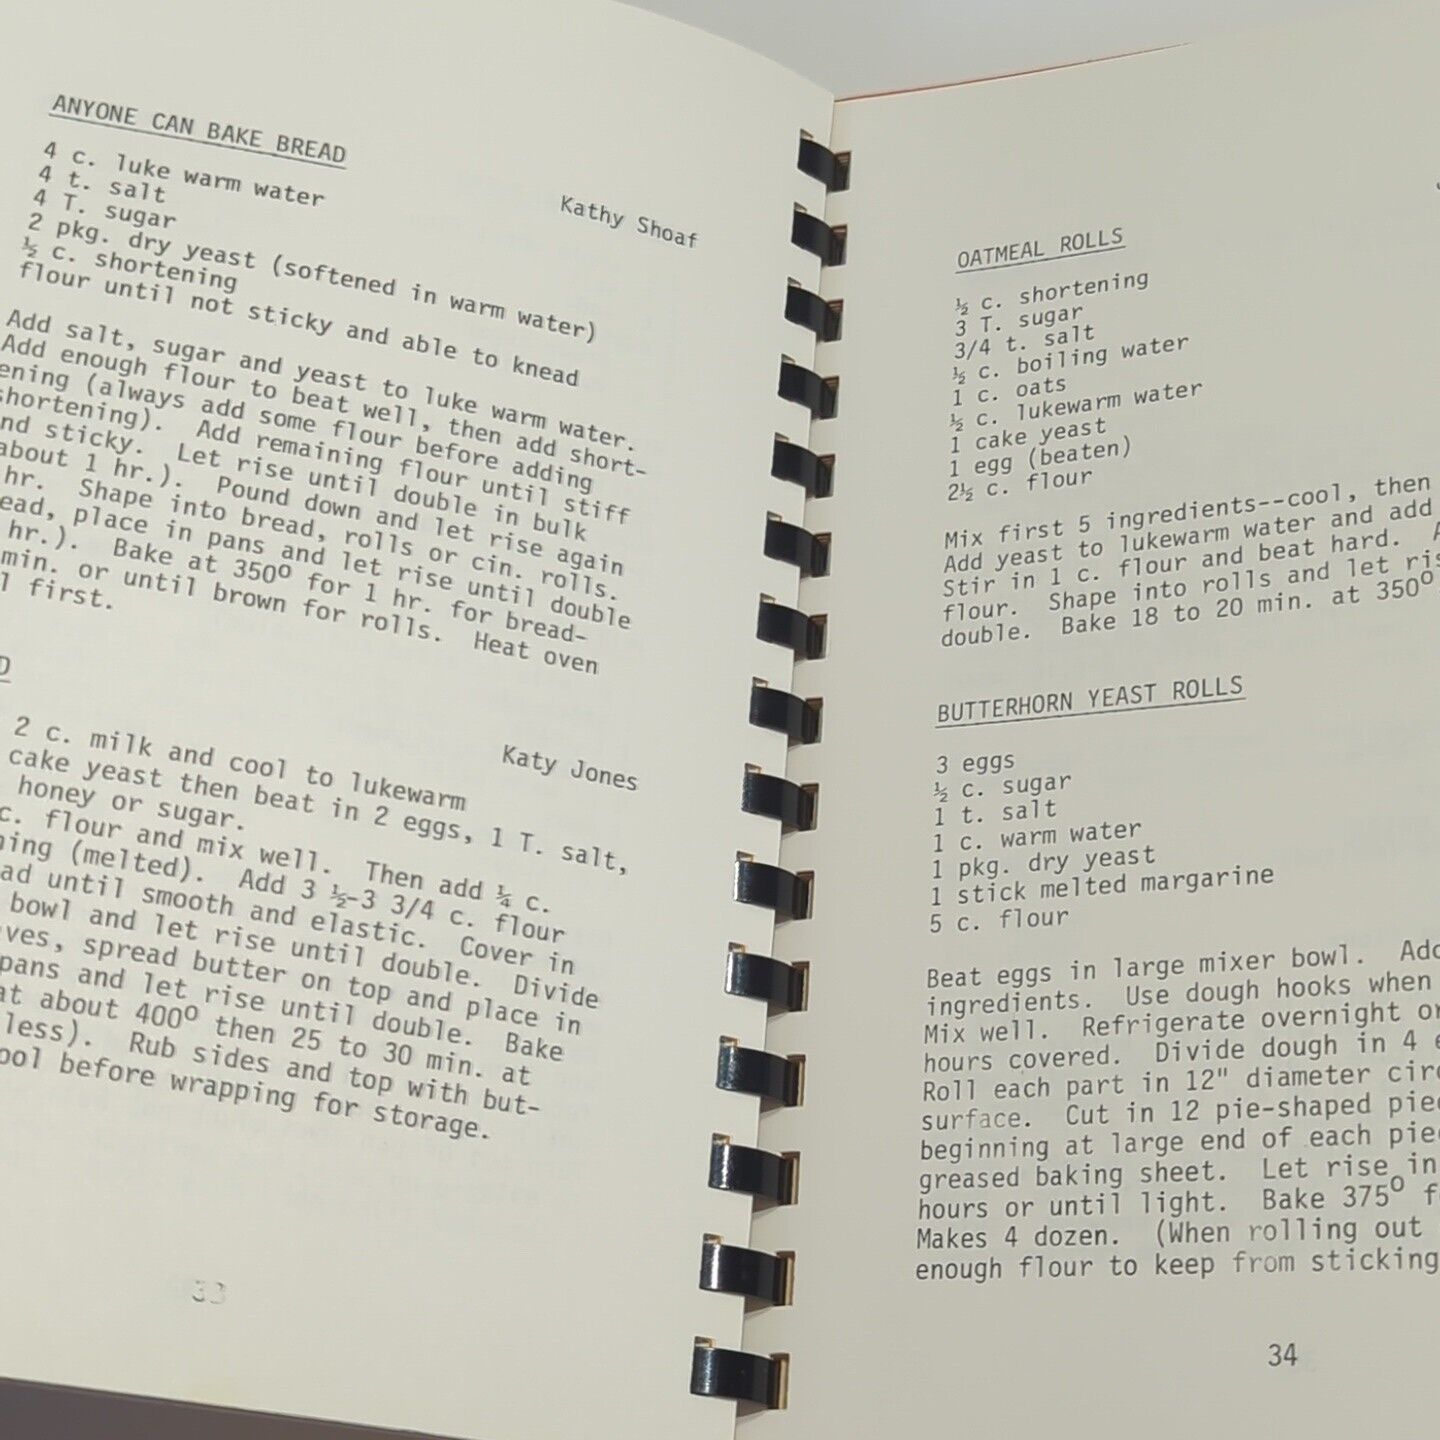 ANYONE CAN BAKE BREAD
Kathy Shoaf
4 c. luke warm water
4 t. salt
4 T. sugar
2 pkg. dry yeast (softened in warm water)
½ c. shortening
flour until not sticky and able to knead
Add salt, sugar and yeast to luke warm water.
Add enough flour to beat well, then add short-
ening (always add some flour before adding
shortening). Add remaining flour until stiff
nd sticky. Let rise until double in bulk
about 1 hr.). Pound down and let rise again
hr. Shape into bread, rolls or cin. rolls.
ead, place in pans and let rise until double
hr.). Bake at 350° for 1 hr. for bread-
min. or until brown for rolls. Heat oven
l first.
D
Katy Jones
2 c. milk and cool to lukewarm
cake yeast then beat in 2 eggs, 1 T. salt,
honey or sugar.
c. flour and mix well. Then add ¼ c.
ning (melted). Add 3 ½-3 3/4 c. flour
ad until smooth and elastic. Cover in
bowl and let rise until double. Divide
ves, spread butter on top and place in
pans and let rise until double. Bake
at about 400° then 25 to 30 min. at
less). Rub sides and top with but-
ool before wrapping for storage.
33
OATMEAL ROLLS
½ c. shortening
3 T. sugar
3/4 t. salt
½ c. boiling water
1 c. oats
½ c. lukewarm water
1 cake yeast
1 egg (beaten)
2½ c. flour
Mix first 5 ingredients--cool, then
Add yeast to lukewarm water and add
Stir in 1 c. flour and beat hard. A
flour. Shape into rolls and let ris
double. Bake 18 to 20 min. at 350°
BUTTERHORN YEAST ROLLS
3 eggs
½ c. sugar
1 t. salt
1 c. warm water
1 pkg. dry yeast
1 stick melted margarine
5 c. flour
Beat eggs in large mixer bowl. Add
ingredients. Use dough hooks when
Mix well. Refrigerate overnight or
hours covered. Divide dough in 4 e
Roll each part in 12" diameter circ
surface. Cut in 12 pie-shaped piec
beginning at large end of each piec
greased baking sheet. Let rise in
hours or until light. Bake 375° f
Makes 4 dozen. (When rolling out
enough flour to keep from sticking
34